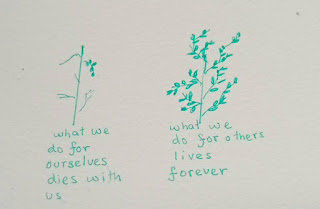 what we
do for
ourselves
dies with
us
what we
do for others
lives
forever